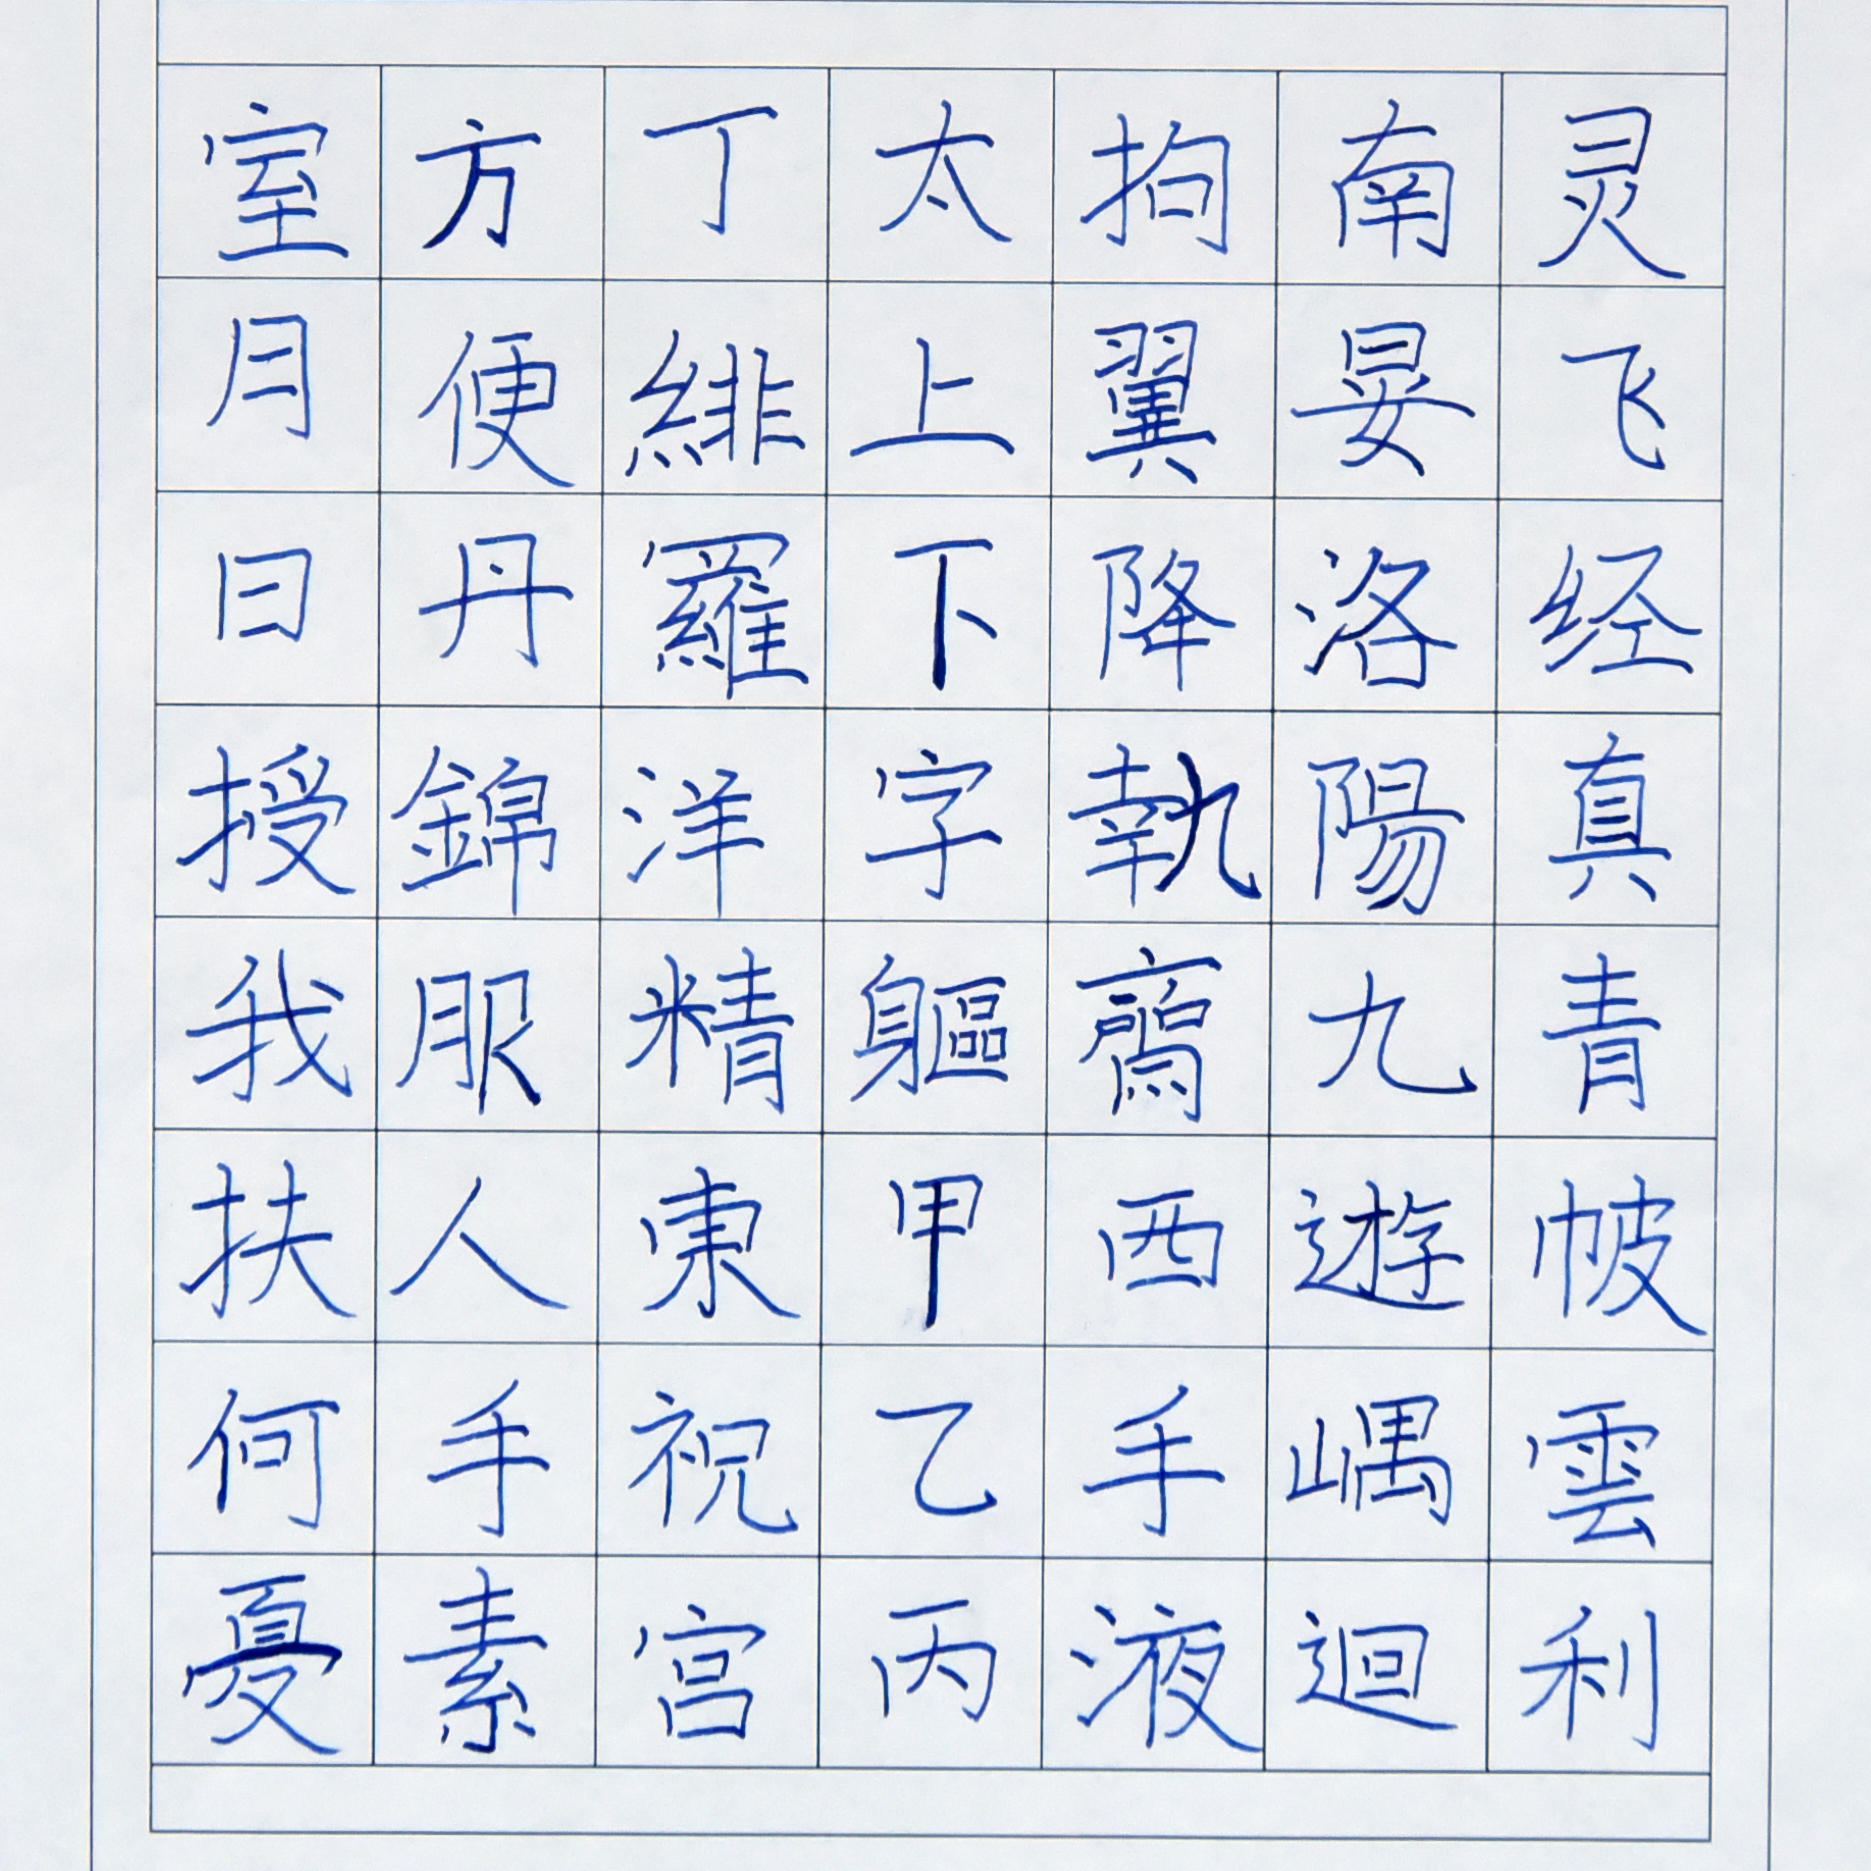 灵飞经真青帔雲利
南晏洛陽九遊嵎迴
拘翼降執西手液
太上下字軀甲乙丙
丁緋羅洋精東祝宫
方便丹錦服人手素
室月日授我扶何憂